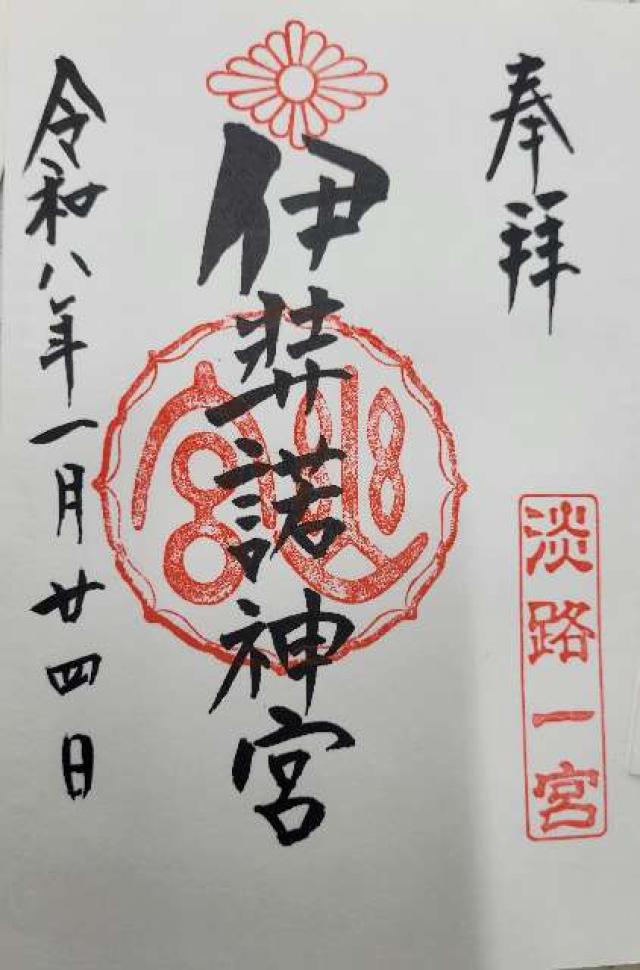 奉拝
淡路一宮
伊弉諾神宮
令和八年一月廿四日